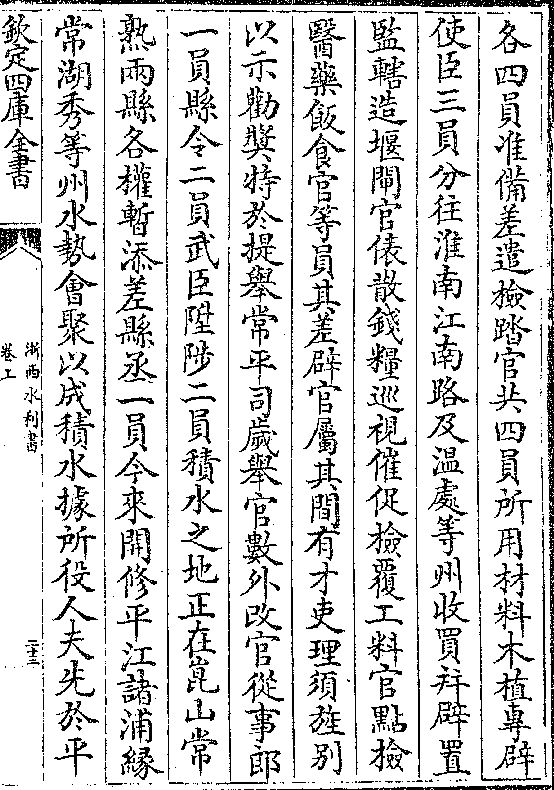 各四員准備差遣檢踏官共四員所用材料木植專辟
使臣三員分往淮南江南路及温處等州收買并辟置
監轄造堰閘官俵散錢糧巡視催促檢覆工料官點檢
醫藥飯食官等員其差辟官屬其間有才吏理須旌别
以示勸奬特於提舉常平司歲舉官數外改官從事郎
一員縣令二員武臣陞陟二員積水之地正在崑山常
熟兩縣各權暫添差縣丞一員今來開修平江諸浦緣
常湖秀等州水勢會聚以成積水據所役人夫先於平
欽定四庫全書
浙西水利書
卷上
二十三